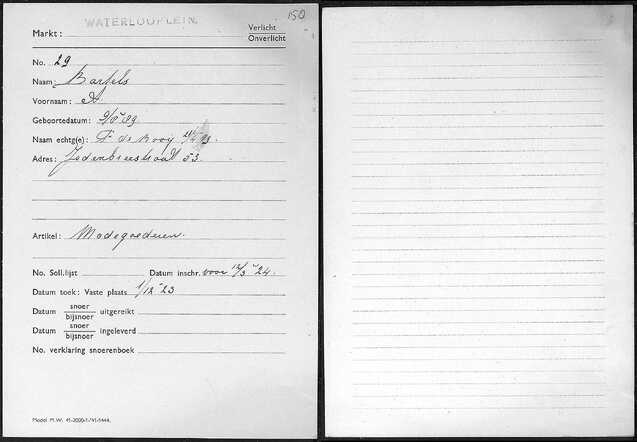 150
WATERLOOPLEIN.
Markt:
Verlicht
Onverlicht
No. 29
Naam: Bartels
Voornaam: A.
Geboortedatum: 9/8 '89
Naam echtg(e): F de Rooij
Adres: Jodenbreestraat 53
Artikel: Modegoederen.
No. Soll.lijst Datum inschr. voor 12/3 '24.
Datum toek: Vaste plaats 1/12 '23
Datum snoer/bijsnoer uitgereikt
Datum snoer/bijsnoer ingeleverd
No. verklaring snoerenboek
Model M.W.